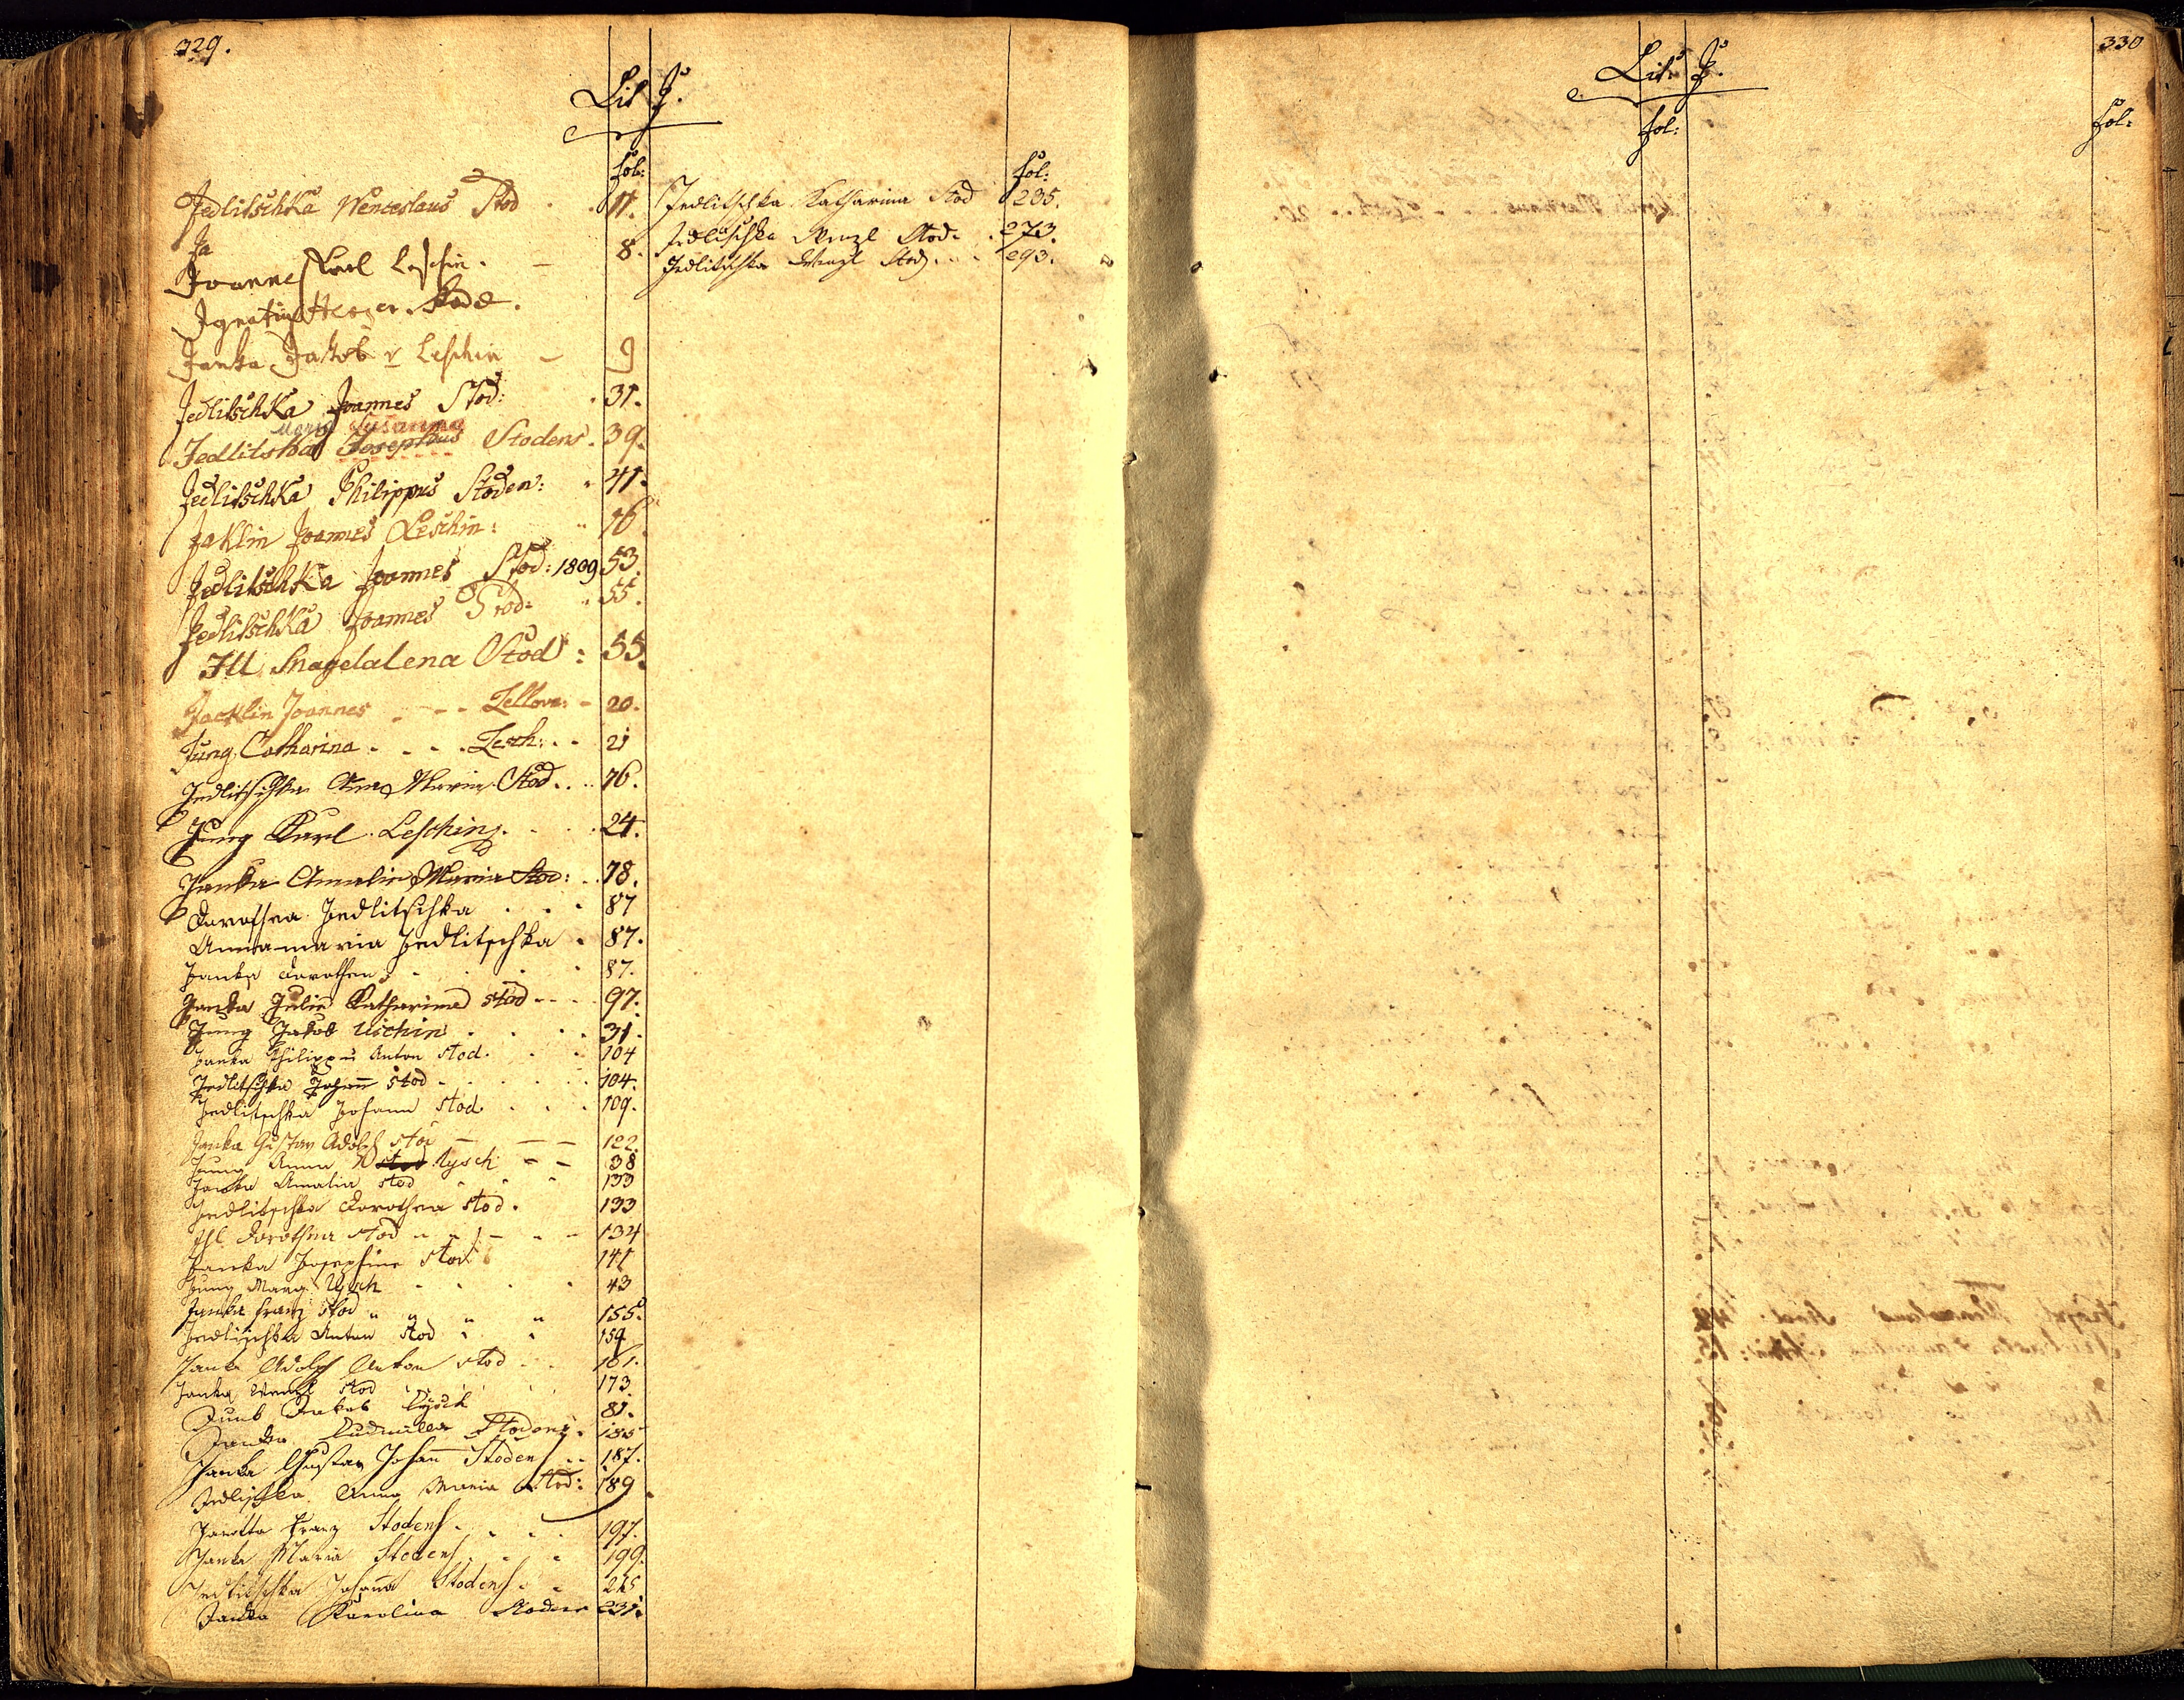 329.
Lit J.
fol:
Jedlitschka Wenceslaus Stod . . 11.
Ja
Joannes Karl Leschin. — 8.
Ignatius Stod.
Janka Jakob v Leschin — 9
Jedlitschka Joannes Stod: . 31.
Maria Susanna
Jedlitska Josephus Stodens. 39.
Jedlitschka Philippus Stoden: . 41.
Jaklin Joannes Leschin: 16.
Jedlitschka Joannes Stod: 1809 53.
Jedlitschka Joannes Stod: 55.
Ill Magdalena Stod: 55.
Jacklin Joannes . - - - Zellova: - 20.
Jung Catharina . . . . Lesch: . . 21
Jedlitschka Anna Maria Stod. . . 76.
Jung Karl Leschin. . . . 24.
Janka Amalia Maria Stod: . . 78.
Dorothea Jedlitschka . . . 87
Annamaria Jedlitschka . 87.
Janka Dorothea . . . 87.
Janka Julie Katharina Stod - - . . 97.
Jung Jakob Lischin . . . . 31.
Janka Philipp Anton Stod. . . 104
Jedlitschka Johann Stod - . . . . 104.
Jedlitschka Johann Stod . . . 109.
Janka Gustav Adolf Stod — — — 122.
Jung Anna Stod Lysch - - 38
Janka Amalia Stod . . . 133
Jedlitschka Dorothea Stod. 133
Ihl Dorothea Stod - - - - - 134
Janka Josephine Stod 141
Jung Marg. Lysch . . . . 43
Janka Franz Stod " " " " 155.
Jedlischka Anton Stod . . 159
Janka Adolf Anton Stod . . 161.
Janka Wenzl Stod . . . 173.
Junk Jakob Lysch 81.
Janka Ludmilla Stodens. 185
Janka Gustav Johann Stodens . . 187.
Jedlischka Anna Maria Stod: 189.
Franz Stodens. . . . 197.
Janka Maria Stodens . . . 199.
Jedlitschka Johanna Stodens . . 215
Janka Karolina Stodens 231.
fol:
Jedlitschka Katharina Stod 235.
Jedlitschka Wenzl Stod. . 273.
Jedlitschka Wenzl Stod. . . . 293.
330
Lit J.
fol:
fol: